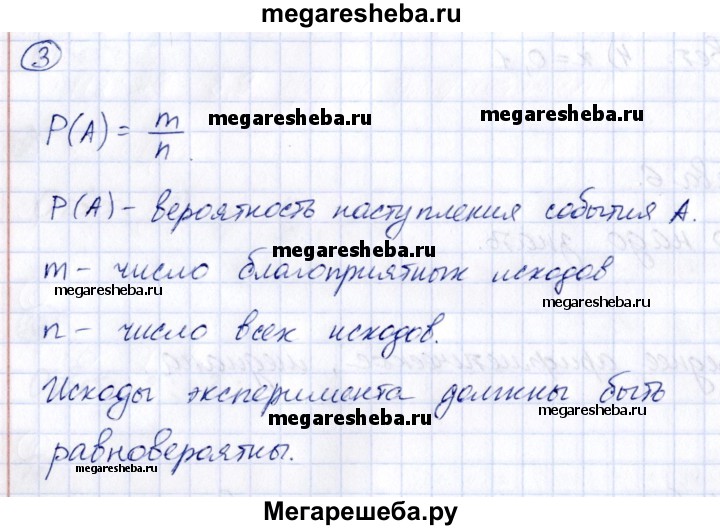 megaresheba.ru
3
P(A) = m/n.
megaresheba.ru
megaresheba.ru
P(A) - вероятность наступления события A.
megaresheba.ru
m - число благоприятных исходов
megaresheba.ru
megaresheba.ru
n - число всех исходов.
Исходы эксперимента должны быть
megaresheba.ru
megaresheba.ru
равновероятны.
megaresheba.ru
Мегарешеба.ру